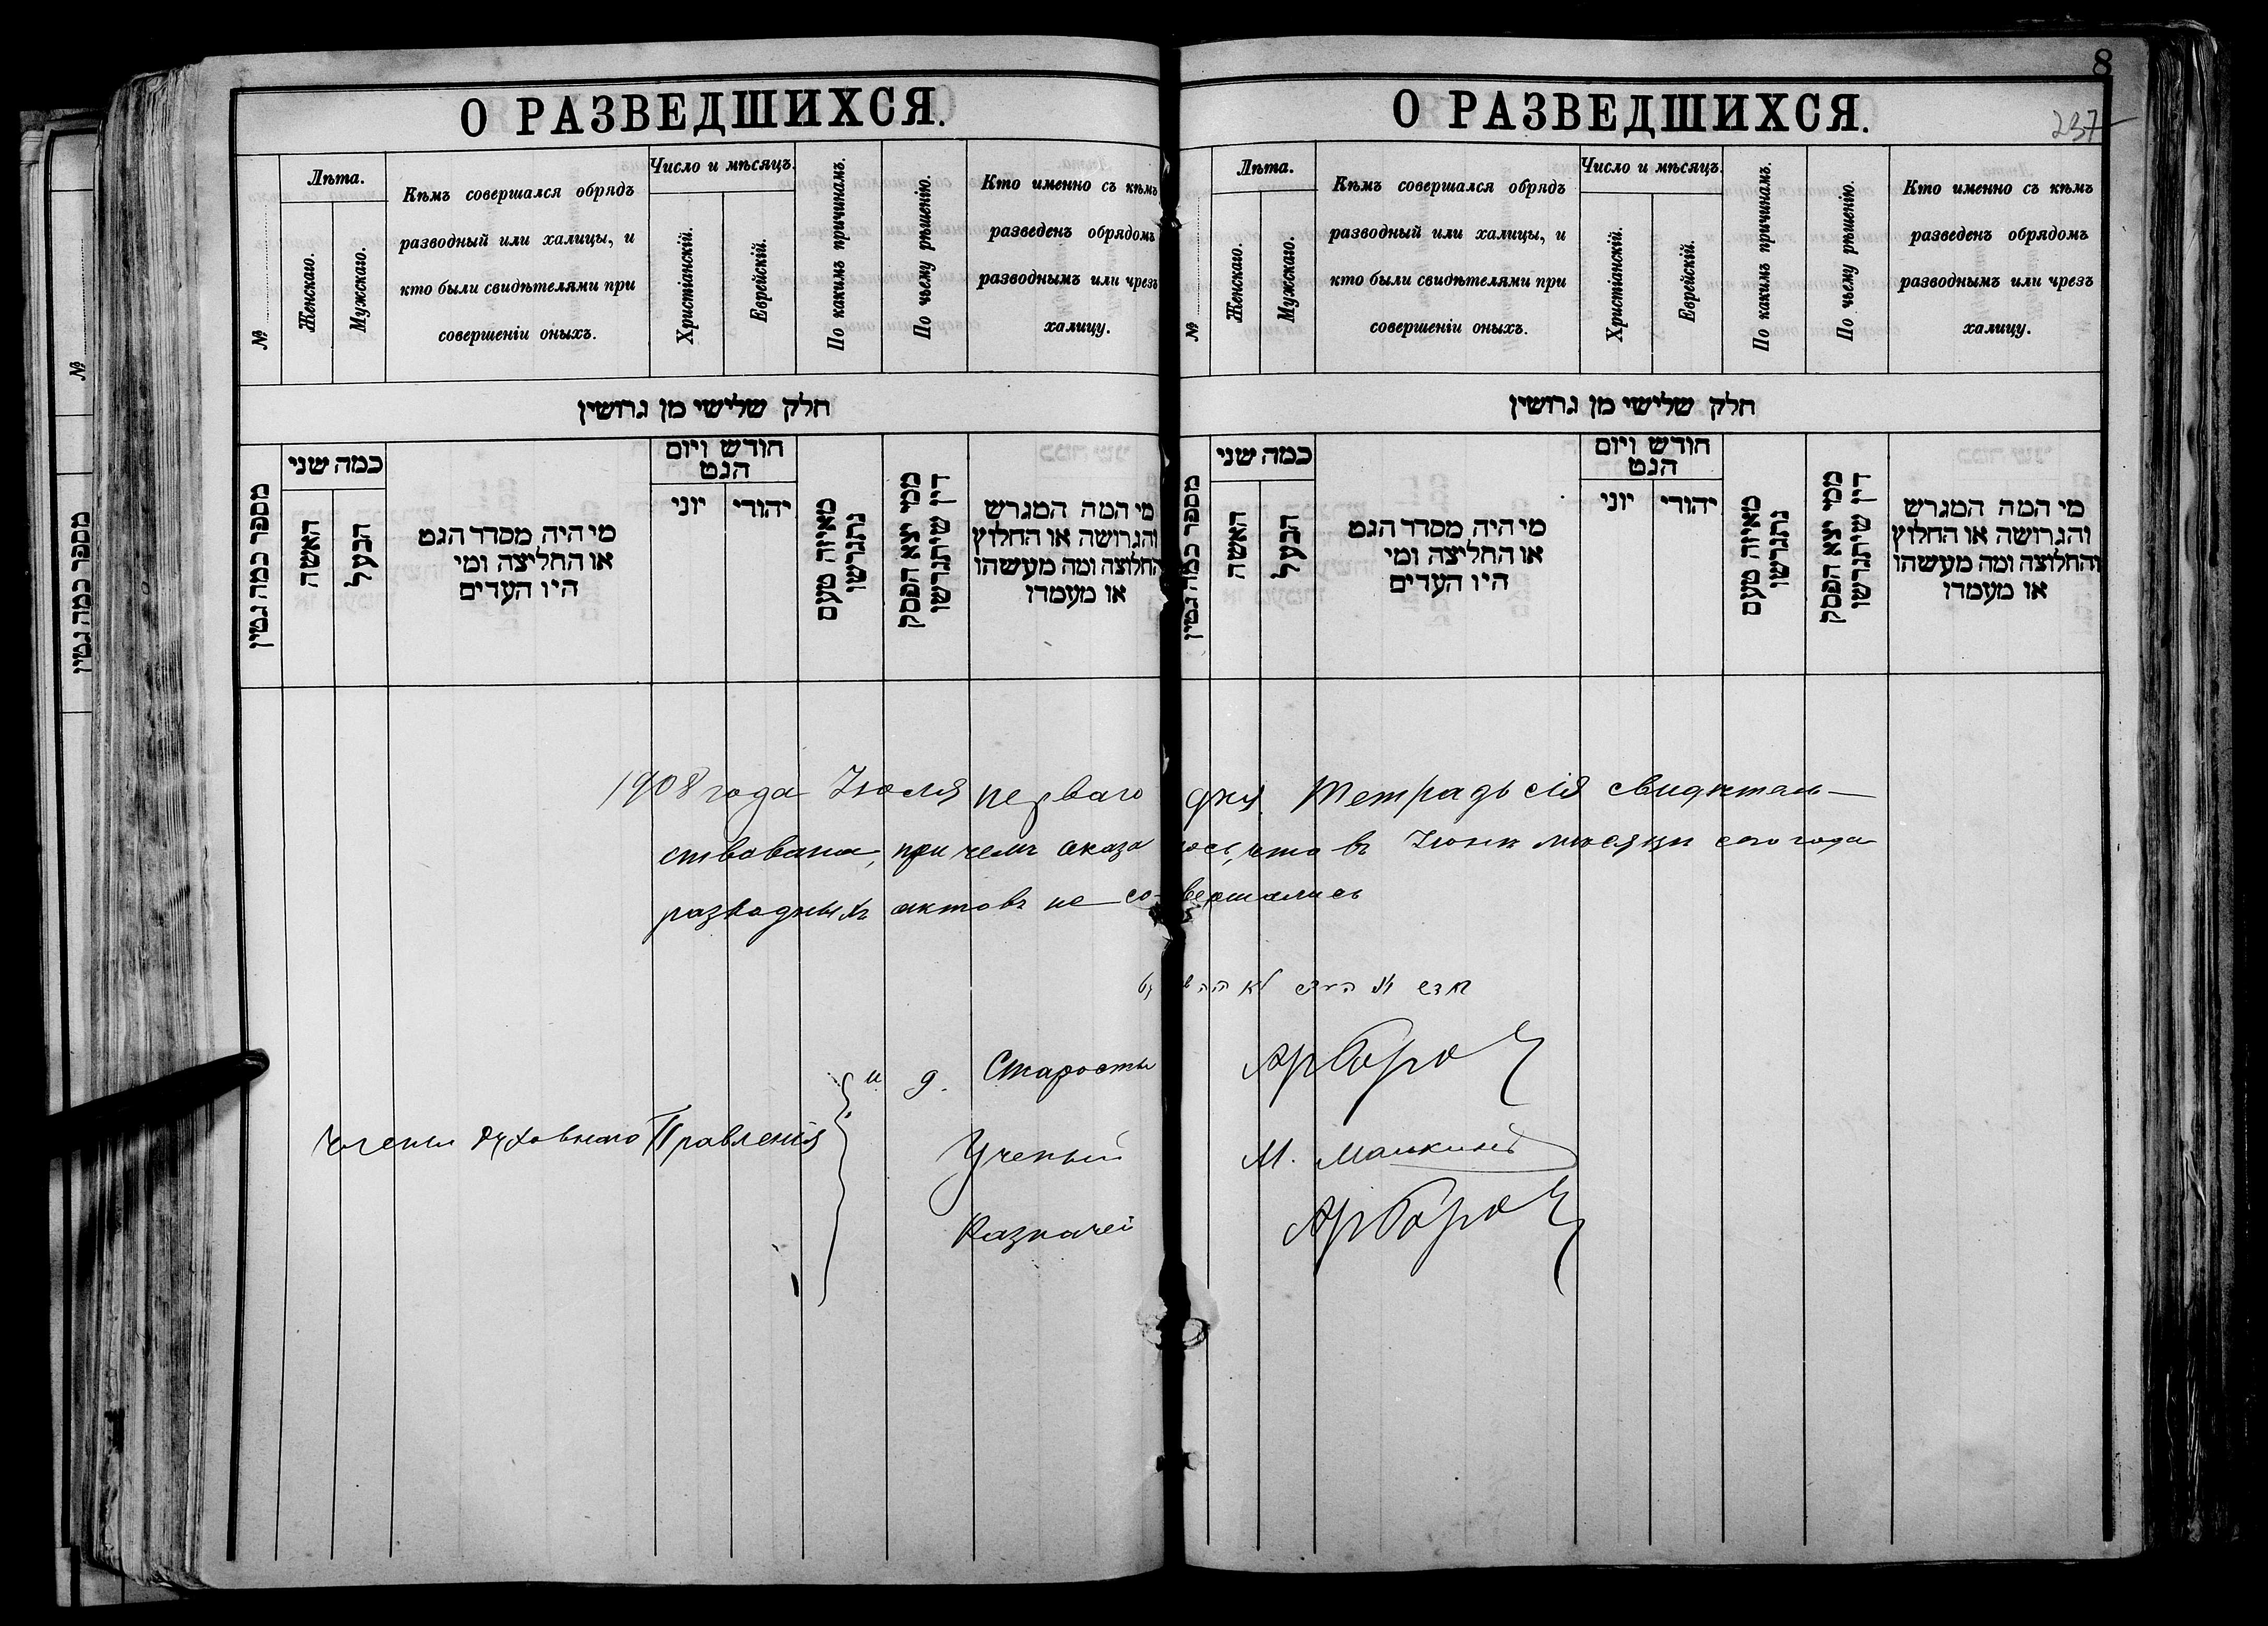 8
О РАЗВЕДШИХСЯ.
№
Лѣта.
Женскаго.
Мужскаго.
Кѣмъ совершался обрядъ
разводный или халицы, и
кто были свидѣтелями при
совершеніи оныхъ.
Число и мѣсяцъ.
Христіанскій.
Еврейскій.
По какимъ причинамъ.
По чьему рѣшенію.
Кто именно съ кѣмъ
разведенъ обрядомъ
разводнымъ или чрезъ
халицу.
חלק שלישי מן גרושין
מספר כמה גטין
כמה שני
האשה
הבעל
מי היה מסדר הגט
או החליצה ומי
היו העדים
חודש ויום
הגט
יוני
יהודי
מאיזה טעם
נתגרשו
ממי יצא הפסק
דין שיתגרשו
מי המה המגרש
והגרושה או החלוץ
והחלוצה ומה מעשהו
או מעמדו
О РАЗВЕДШИХСЯ.
237
№
Лѣта.
Женскаго.
Мужскаго.
Кѣмъ совершался обрядъ
разводный или халицы, и
кто были свидѣтелями при
совершеніи оныхъ.
Число и мѣсяцъ.
Христіанскій.
Еврейскій.
По какимъ причинамъ.
По чьему рѣшенію.
Кто именно съ кѣмъ
разведенъ обрядомъ
разводнымъ или чрезъ
халицу.
חלק שלישי מן גרושין
מספר כמה גטין
כמה שני
האשה
הבעל
מי היה מסדר הגט
או החליצה ומי
היו העדים
חודש ויום
הגט
יוני
יהודי
מאיזה טעם
נתגרשו
ממי יצא הפסק
דין שיתגרשו
מי המה המגרש
והגרושה או החלוץ
והחלוצה ומה מעשהו
או מעמדו
1908 года Іюля перваго дня Тетрадь сія свидѣтель-
ствована, при чемъ оказалось, что въ Іюнѣ мѣсяцѣ сего года
разводныхъ актовъ не совершались
Члены Духовнаго Правленія
и д. Старосты
Ученый М. Малкинъ
Казначей
№
מספר כמה גטין